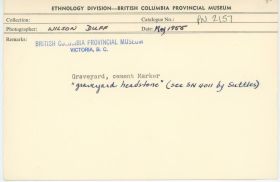 ETHNOLOGY DIVISION—BRITISH COLUMBIA PROVINCIAL MUSEUM
Collection: Catalogue No.: PN 2157
Photographer: WILSON DUFF Date: May 1955
Remarks:
BRITISH COLUMBIA PROVINCIAL MUSEUM
VICTORIA, B. C.
Graveyard, cement Marker
"graveyard headstone" (see SN 4011 by Suttles)